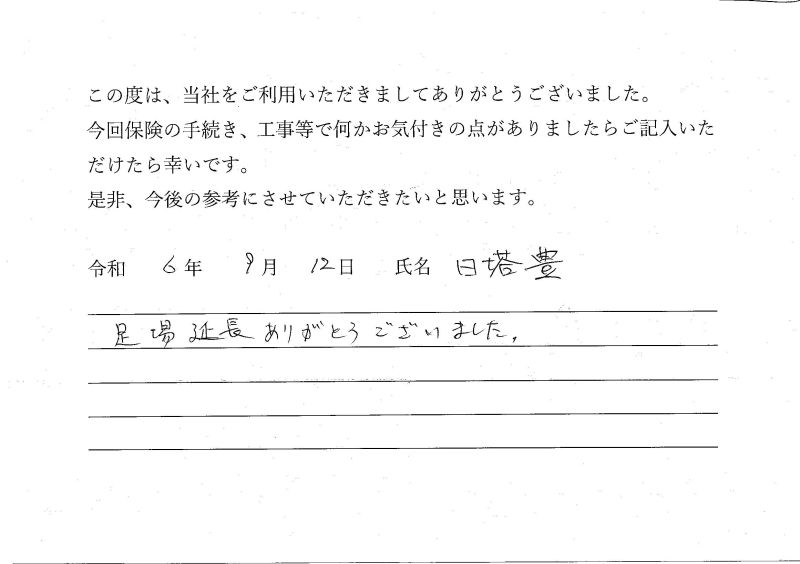 この度は、当社をご利用いただきましてありがとうございました。
今回保険の手続き、工事等で何かお気付きの点がありましたらご記入いた
だけたら幸いです。
是非、今後の参考にさせていただきたいと思います。
令和 6年 9月 12日 氏名 日塔豊
足場延長ありがとうございました。